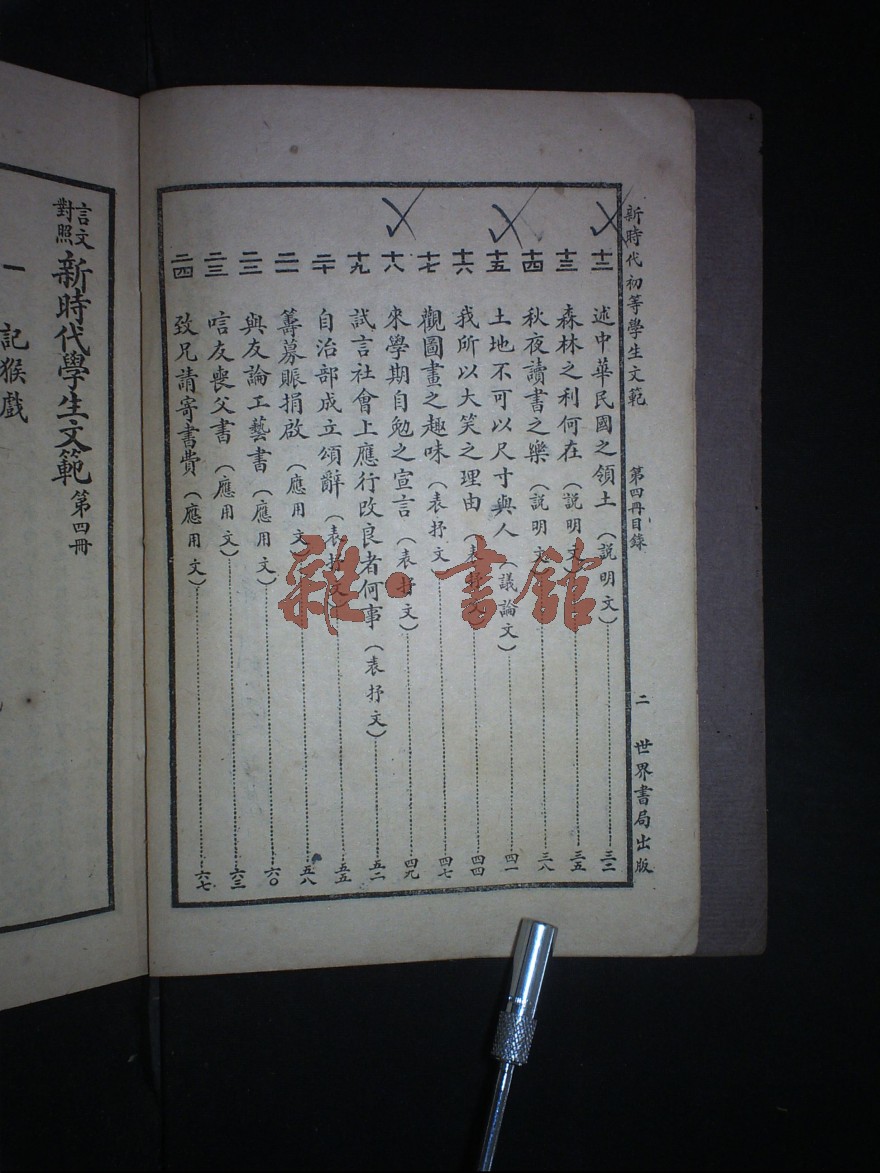 新時代初等學生文範 第四冊目錄 二 世界書局出版
十二 述中華民國之領土(說明文)……三二
十三 森林之利何在(說明文)……三五
十四 秋夜讀書之樂(說明文)……三八
十五 土地不可以尺寸與人(議論文)……四一
十六 我所以大笑之理由(表抒文)……四四
十七 觀圖畫之趣味(表抒文)……四七
十八 來學期自勉之宣言(表抒文)……四九
十九 試言社會上應行改良者何事(表抒文)……五二
二十 自治部成立頌辭(表抒文)……五五
二一 籌募賑捐啟(應用文)……五八
二二 與友論工藝書(應用文)……六〇
二三 唁友喪父書(應用文)……六三
二四 致兄請寄書費(應用文)……六七
言文對照 新時代學生文範 第四冊
一 記猴戲
雜·書館